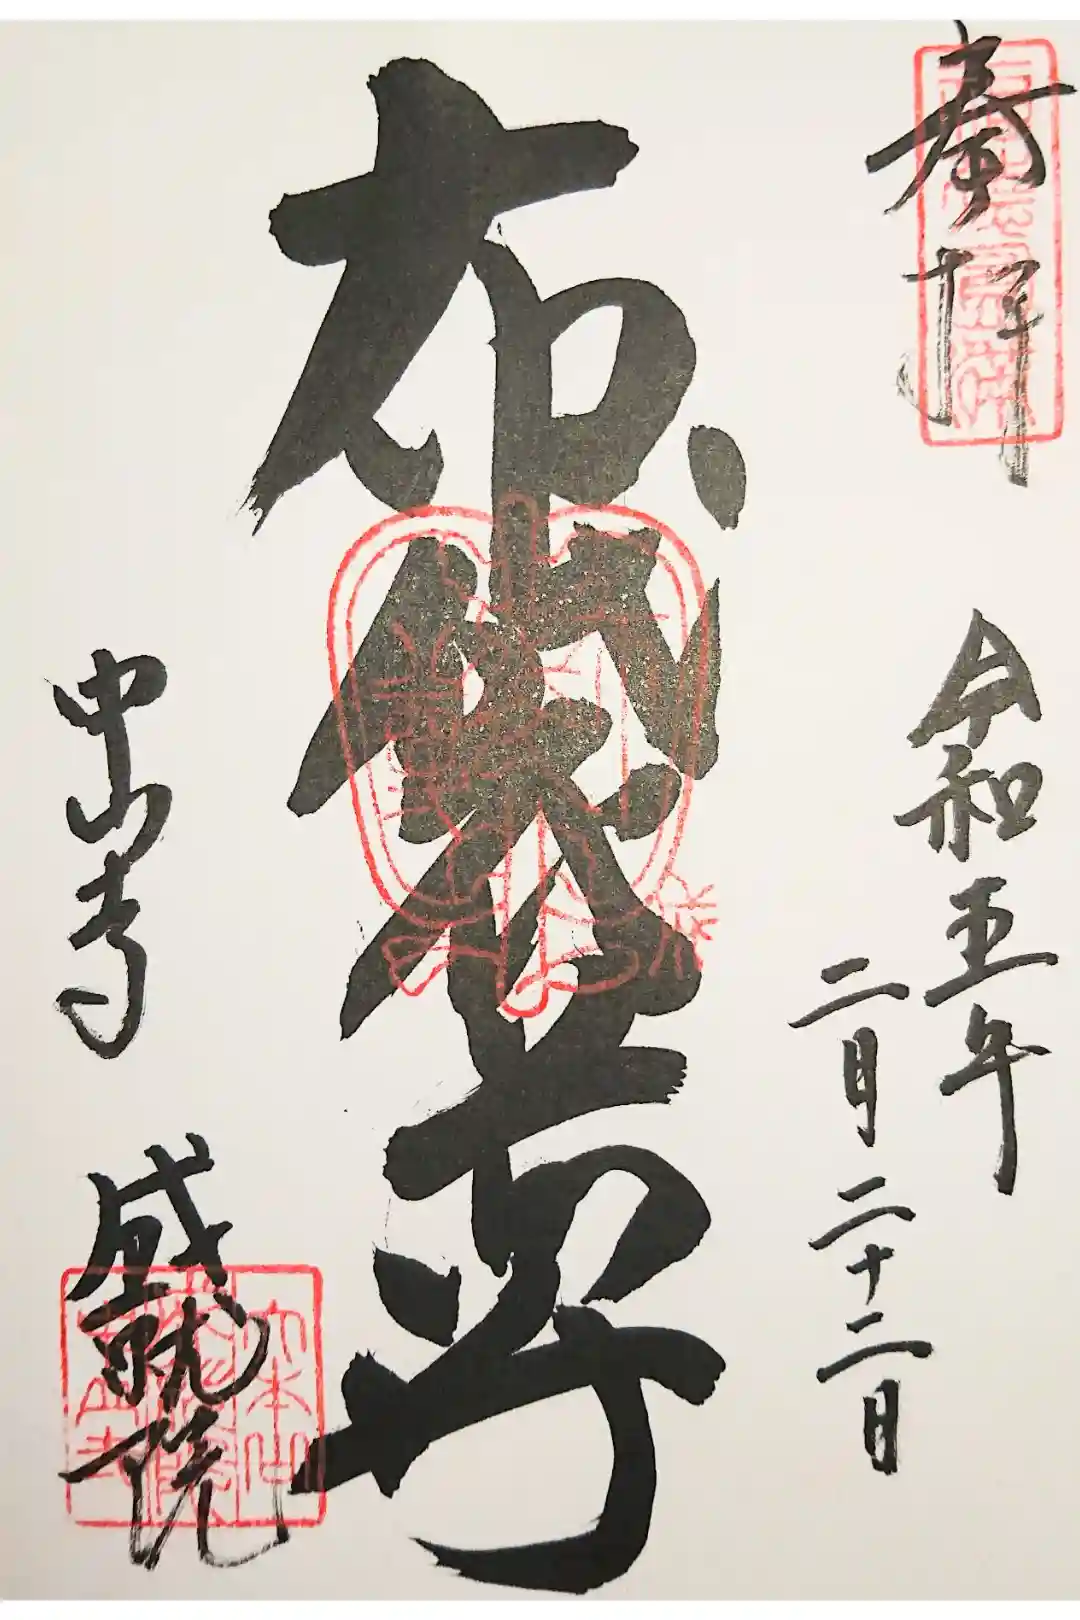 奉拝
令和五年
二月二十二日
布袋尊
中山寺 成就院
大本山